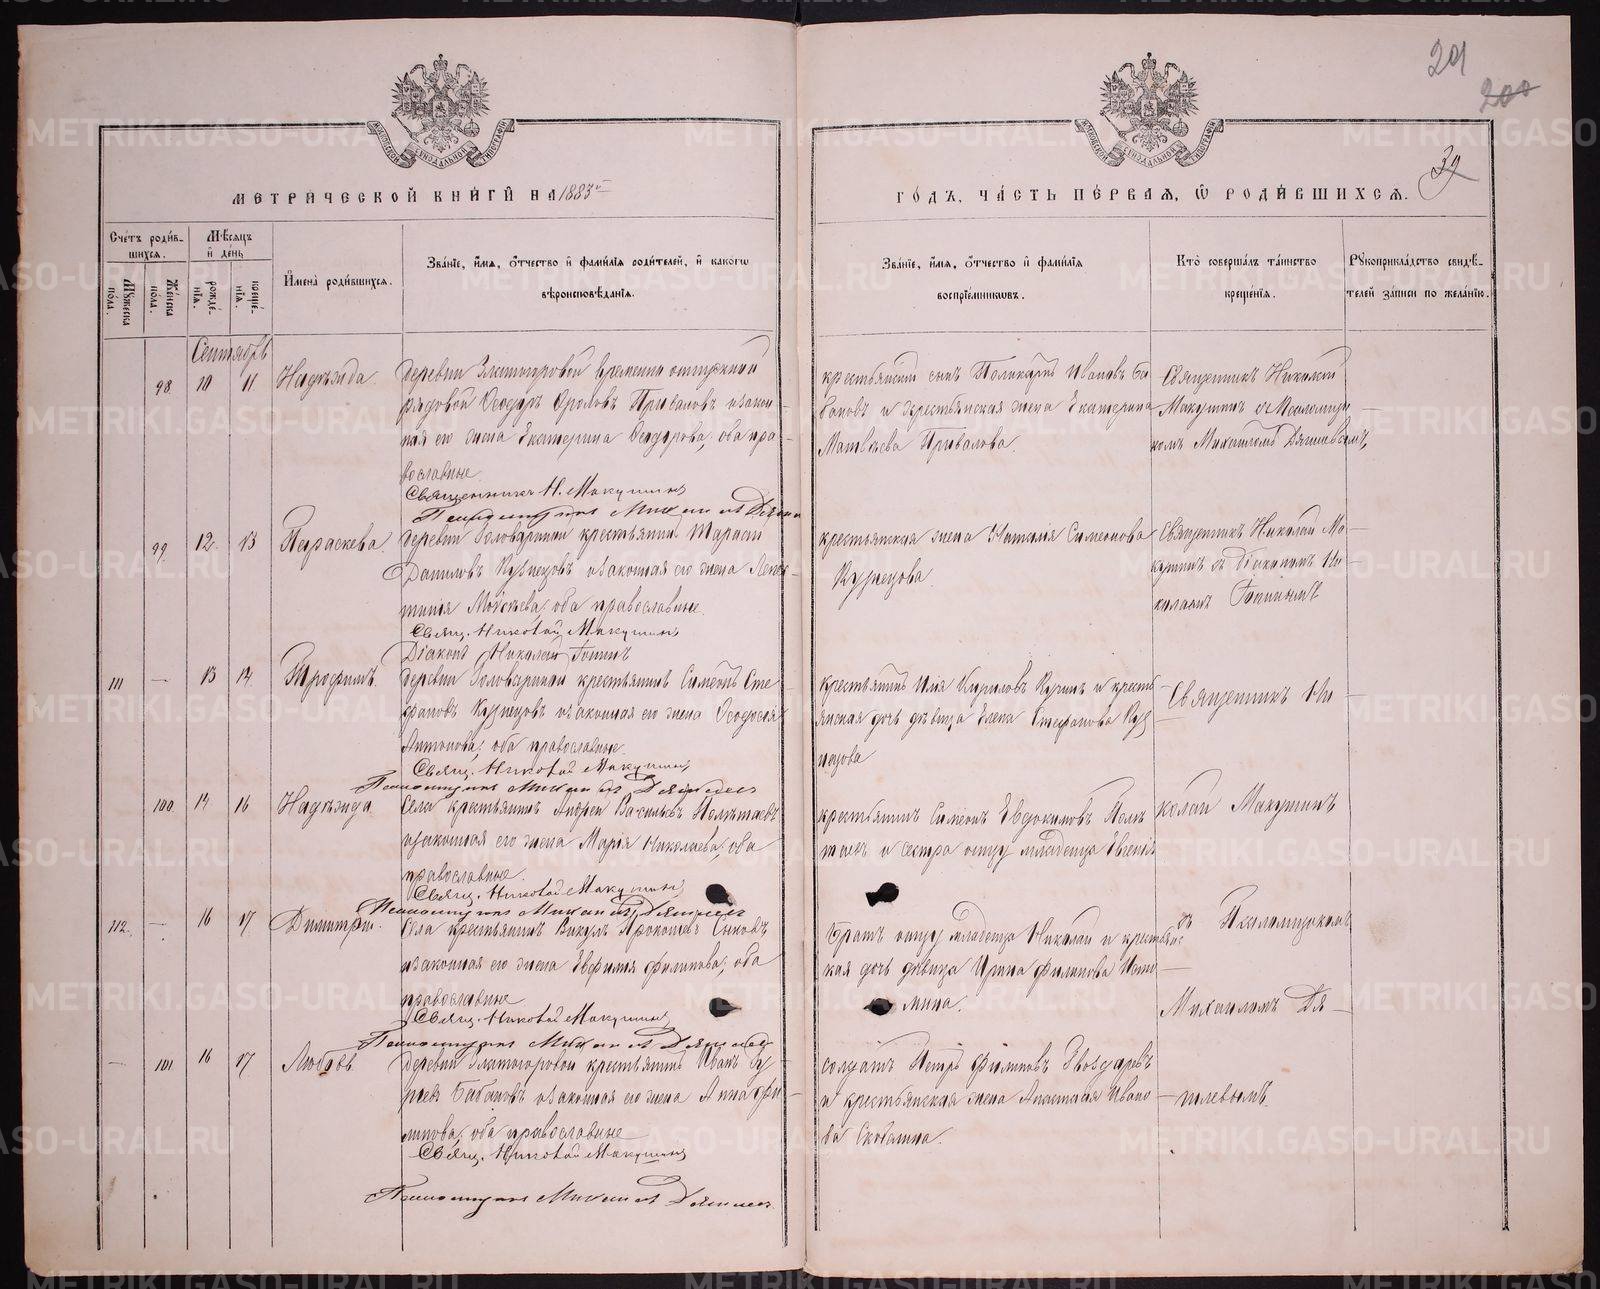 29
200
39
МОСКОВСКОЙ СУНОДАЛЬНОЙ ТИПОГРАФІИ
МЕТРИЧЕСКОЙ КНИГИ НА 1883й
ГОДЪ, ЧАСТЬ ПЕРВАЯ, Ѡ РОДИВШИХСЯ.
Счетъ родив-
шихся.
Мужеска пола.
Женска пола.
Мѣсяцъ
и день
рожде-
нія.
креще-
нія.
Имена родившихся.
Званіе, имя, отчество и фамилія родителей, и какогѡ
вѣроисповѣданія.
Званіе, имя, отчество и фамилія
воспріемникѡвъ.
Кто совершалъ таинство
крещенія.
Рукоприкладство свидѣ-
телей записи по желанію.
Сентябрь
98. 10 11 Надѣжда.
деревни Златогоровой временно отпускной
рядовой Ѳеодоръ Фроловъ Приваловъ и закон-
ная его жена Екатерина Ѳеодорова, оба пра-
вославные.
Священникъ Н. Макушинъ
Псаломщикъ Михаилъ
крестьянскій сынъ Поликарпъ Ивановъ Ба-
бановъ и крестьянская жена Екатерина
Матвѣева Привалова.
Священникъ Николай
Макушинъ съ Псаломщи
комъ Михаиломъ
99. 12. 13 Параскева.
деревни Головариной крестьянинъ Тарасій
Даниловъ Кузнецовъ и законная его жена
Моѵсѣева, оба православные.
Свящ. Николай Макушинъ
Діаконъ Николай Топинъ
крестьянская жена Наталія Симеонова
Кузнецова
Священникъ Николай Ма-
кушинъ съ діакономъ Ни-
колаемъ
111 — 13 14 Трофимъ.
деревни Головариной крестьянинъ Симеонъ Сте-
фановъ Кузнецовъ и законная его жена Ѳеодосія
Антонова, оба православные.
Свящ. Николай Макушинъ
Псаломщикъ Михаилъ
крестьянинъ Илія Кириловъ Куринъ и кресть-
янская дочь дѣвица Елена Стефанова Куз-
нецова
Священникъ Ни
100. 14 16 Надѣжда.
Села крестьянинъ Андрей Васильевъ
и законная его жена Марія Николаева, оба
православные.
Свящ. Николай Макушинъ
Псаломщикъ Михаилъ
крестьянинъ Симеонъ Евдокимовъ
и сестра отцу младенца Евгенія
колай Макушинъ
112. — 16 17 Димитрій.
Села крестьянинъ Викулъ Прокопьевъ
и законная его жена Евфимія Филипова, оба
православные
Свящ. Николай Макушинъ
Псаломщикъ Михаилъ
Братъ отцу младенца Николай и крестьянс-
кая дочь дѣвица Ирина Филипова
съ Псаломщикомъ
Михаиломъ
— 101 16 17 Любовь.
деревни Златогоровой крестьянинъ Иванъ
Бабановъ и законная его жена Анна Фи-
липова, оба православные
Свящ. Николай Макушинъ
Псаломщикъ Михаилъ
солдатъ Петръ Филиповъ
и крестьянская жена Анастасія Ивано-
ва
METRIKI.GASO-URAL.RU